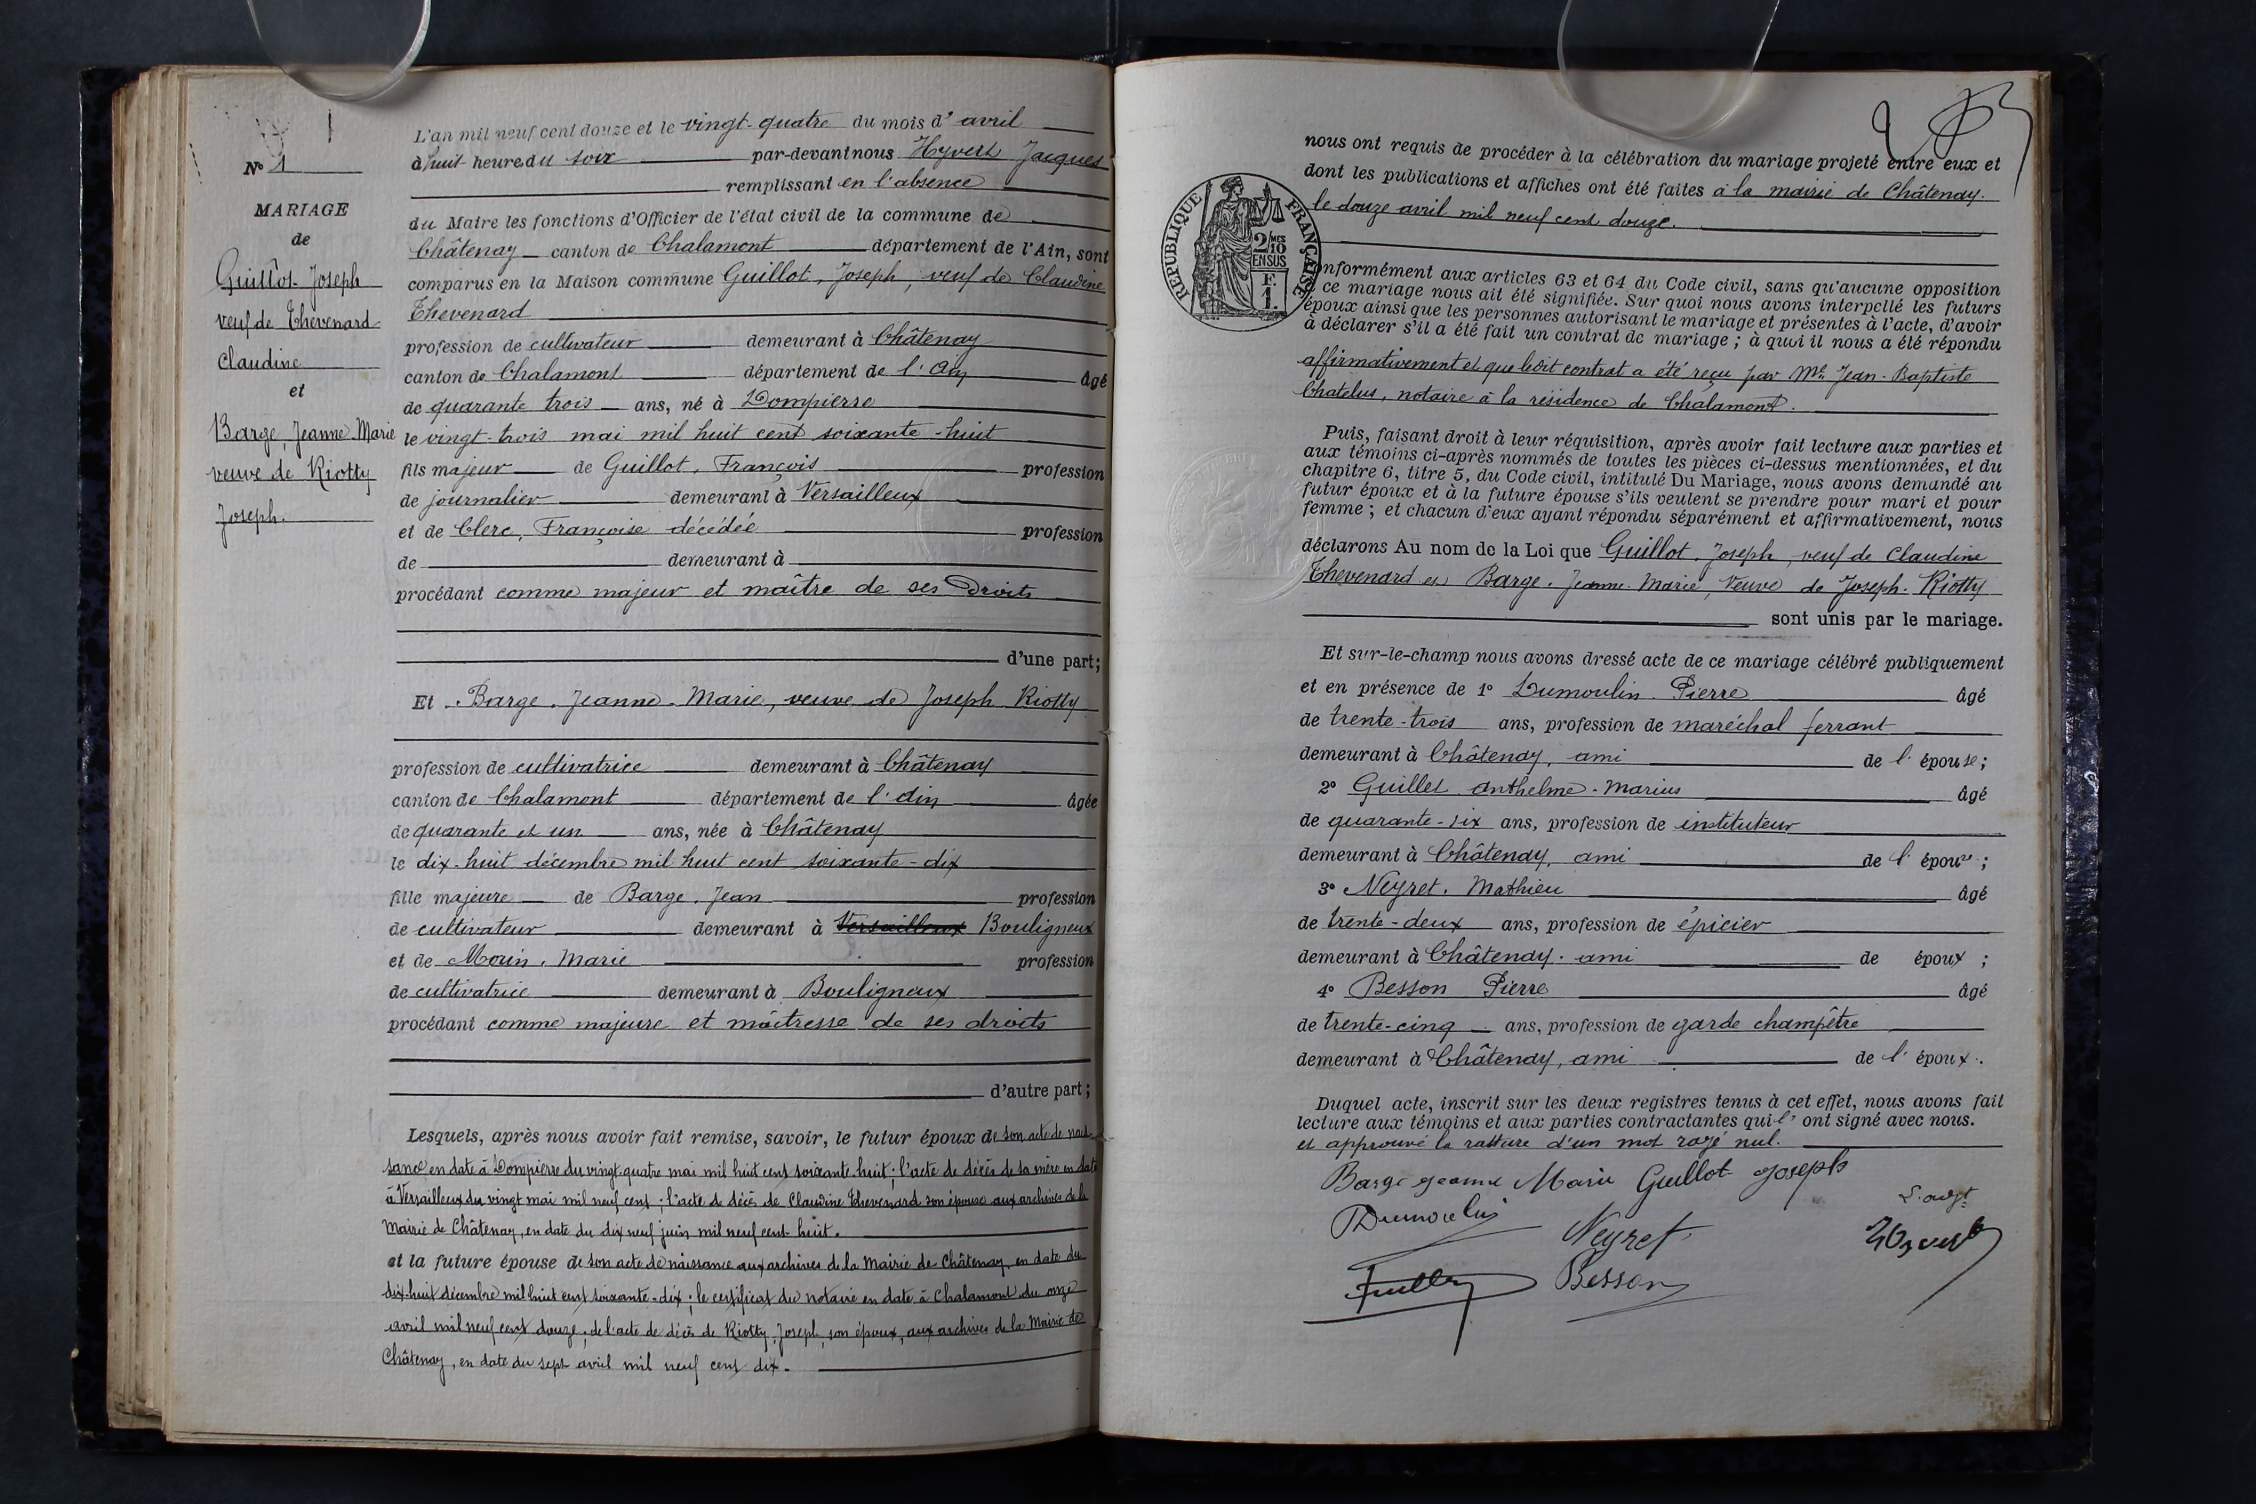 N° 1
MARIAGE
de
Guillot Joseph
veuf de Thévenard
Claudine
et
Barge, Jeanne Marie
veuve de Riotty
Joseph.
L'an mil neuf cent douze et le vingt-quatre du mois d'avril
à huit heures du soir par-devant nous Hyvert Jacques
remplissant en l'absence
du Maire les fonctions d'Officier de l'état civil de la commune de
Châtenay canton de Chalamont département de l'Ain, sont
comparus en la Maison commune Guillot, Joseph, veuf de Claudine
Thevenard
profession de cultivateur demeurant à Châtenay
canton de Chalamont département de l'Ain âgé
de quarante trois ans, né à Dompierre
le vingt-trois mai mil huit cent soixante-huit
fils majeur de Guillot, François profession
de journalier demeurant à Versailleux
et de Clerc, Françoise décédée profession
de demeurant à
procédant comme majeur et maître de ses Droits
d'une part;
Et Barge, Jeanne-Marie, veuve de Joseph Riotty
profession de cultivatrice demeurant à Châtenay
canton de Chalamont département de l'Ain âgée
de quarante et un ans, née à Châtenay
le dix-huit décembre mil huit cent soixante-dix
fille majeure de Barge, Jean profession
de cultivateur demeurant à Versailleux Bouligneux
et de Morin, Marie profession
de cultivatrice demeurant à Bouligneux
procédant comme majeure et maîtresse de ses droits
d'autre part;
Lesquels, après nous avoir fait remise, savoir, le futur époux de son acte de nais-
sance en date à Dompierre du vingt-quatre mai mil huit cent soixante-huit; l'acte de décès de sa mère en date
à Versailleux du vingt mai mil neuf cent; l'acte de décès de Claudine Thevenard son épouse aux archives de la
Mairie de Châtenay, en date du dix neuf juin mil neuf cent huit.
et la future épouse de son acte de naissance aux archives de la Mairie de Châtenay, en date du
dix-huit décembre mil huit cent soixante-dix; le certificat du notaire en date à Chalamont du onze
avril mil neuf cent douze; de l'acte de décès de Riotty, Joseph, son époux, aux archives de la Mairie de
Châtenay, en date du sept avril mil neuf cent dix.
nous ont requis de procéder à la célébration du mariage projeté entre eux et
dont les publications et affiches ont été faites à la mairie de Châtenay.
le douze avril mil neuf cent douze.
RÉPUBLIQUE FRANÇAISE
2/10 MES
EN SUS
F.
1.
onformément aux articles 63 et 64 du Code civil, sans qu'aucune opposition
ce mariage nous ait été signifiée. Sur quoi nous avons interpellé les futurs
époux ainsi que les personnes autorisant le mariage et présentes à l'acte, d'avoir
à déclarer s'il a été fait un contrat de mariage; à quoi il nous a été répondu
affirmativement et que ledit contrat a été reçu par Me Jean-Baptiste
Chatelus, notaire à la résidence de Chalamont.
Puis, faisant droit à leur réquisition, après avoir fait lecture aux parties et
aux témoins ci-après nommés de toutes les pièces ci-dessus mentionnées, et du
chapitre 6, titre 5, du Code civil, intitulé Du Mariage, nous avons demandé au
futur époux et à la future épouse s'ils veulent se prendre pour mari et pour
femme; et chacun d'eux ayant répondu séparément et affirmativement, nous
déclarons Au nom de la Loi que Guillot, Joseph, veuf de Claudine
Thevenard et Barge, Jeanne-Marie, Veuve de Joseph Riotty
sont unis par le mariage.
Et sur-le-champ nous avons dressé acte de ce mariage célébré publiquement
et en présence de 1° Dumoulin Pierre âgé
de trente-trois ans, profession de maréchal ferrant
demeurant à Châtenay, ami de l'épouse;
2° Guillet Anthelme-Marius âgé
de quarante-six ans, profession de instituteur
demeurant à Châtenay, ami de l'épouse;
3° Neyret, Mathieu âgé
de trente-deux ans, profession de épicier
demeurant à Châtenay, ami de époux;
4° Besson Pierre âgé
de trente-cinq ans, profession de garde champêtre
demeurant à Châtenay, ami de l'époux.
Duquel acte, inscrit sur les deux registres tenus à cet effet, nous avons fait
lecture aux témoins et aux parties contractantes qui l' ont signé avec nous.
et approuvé la rature d'un mot rayé nul.
Barge Jeanne Marie Guillot Joseph
Dumoulin Neyret Hyvert
Besson